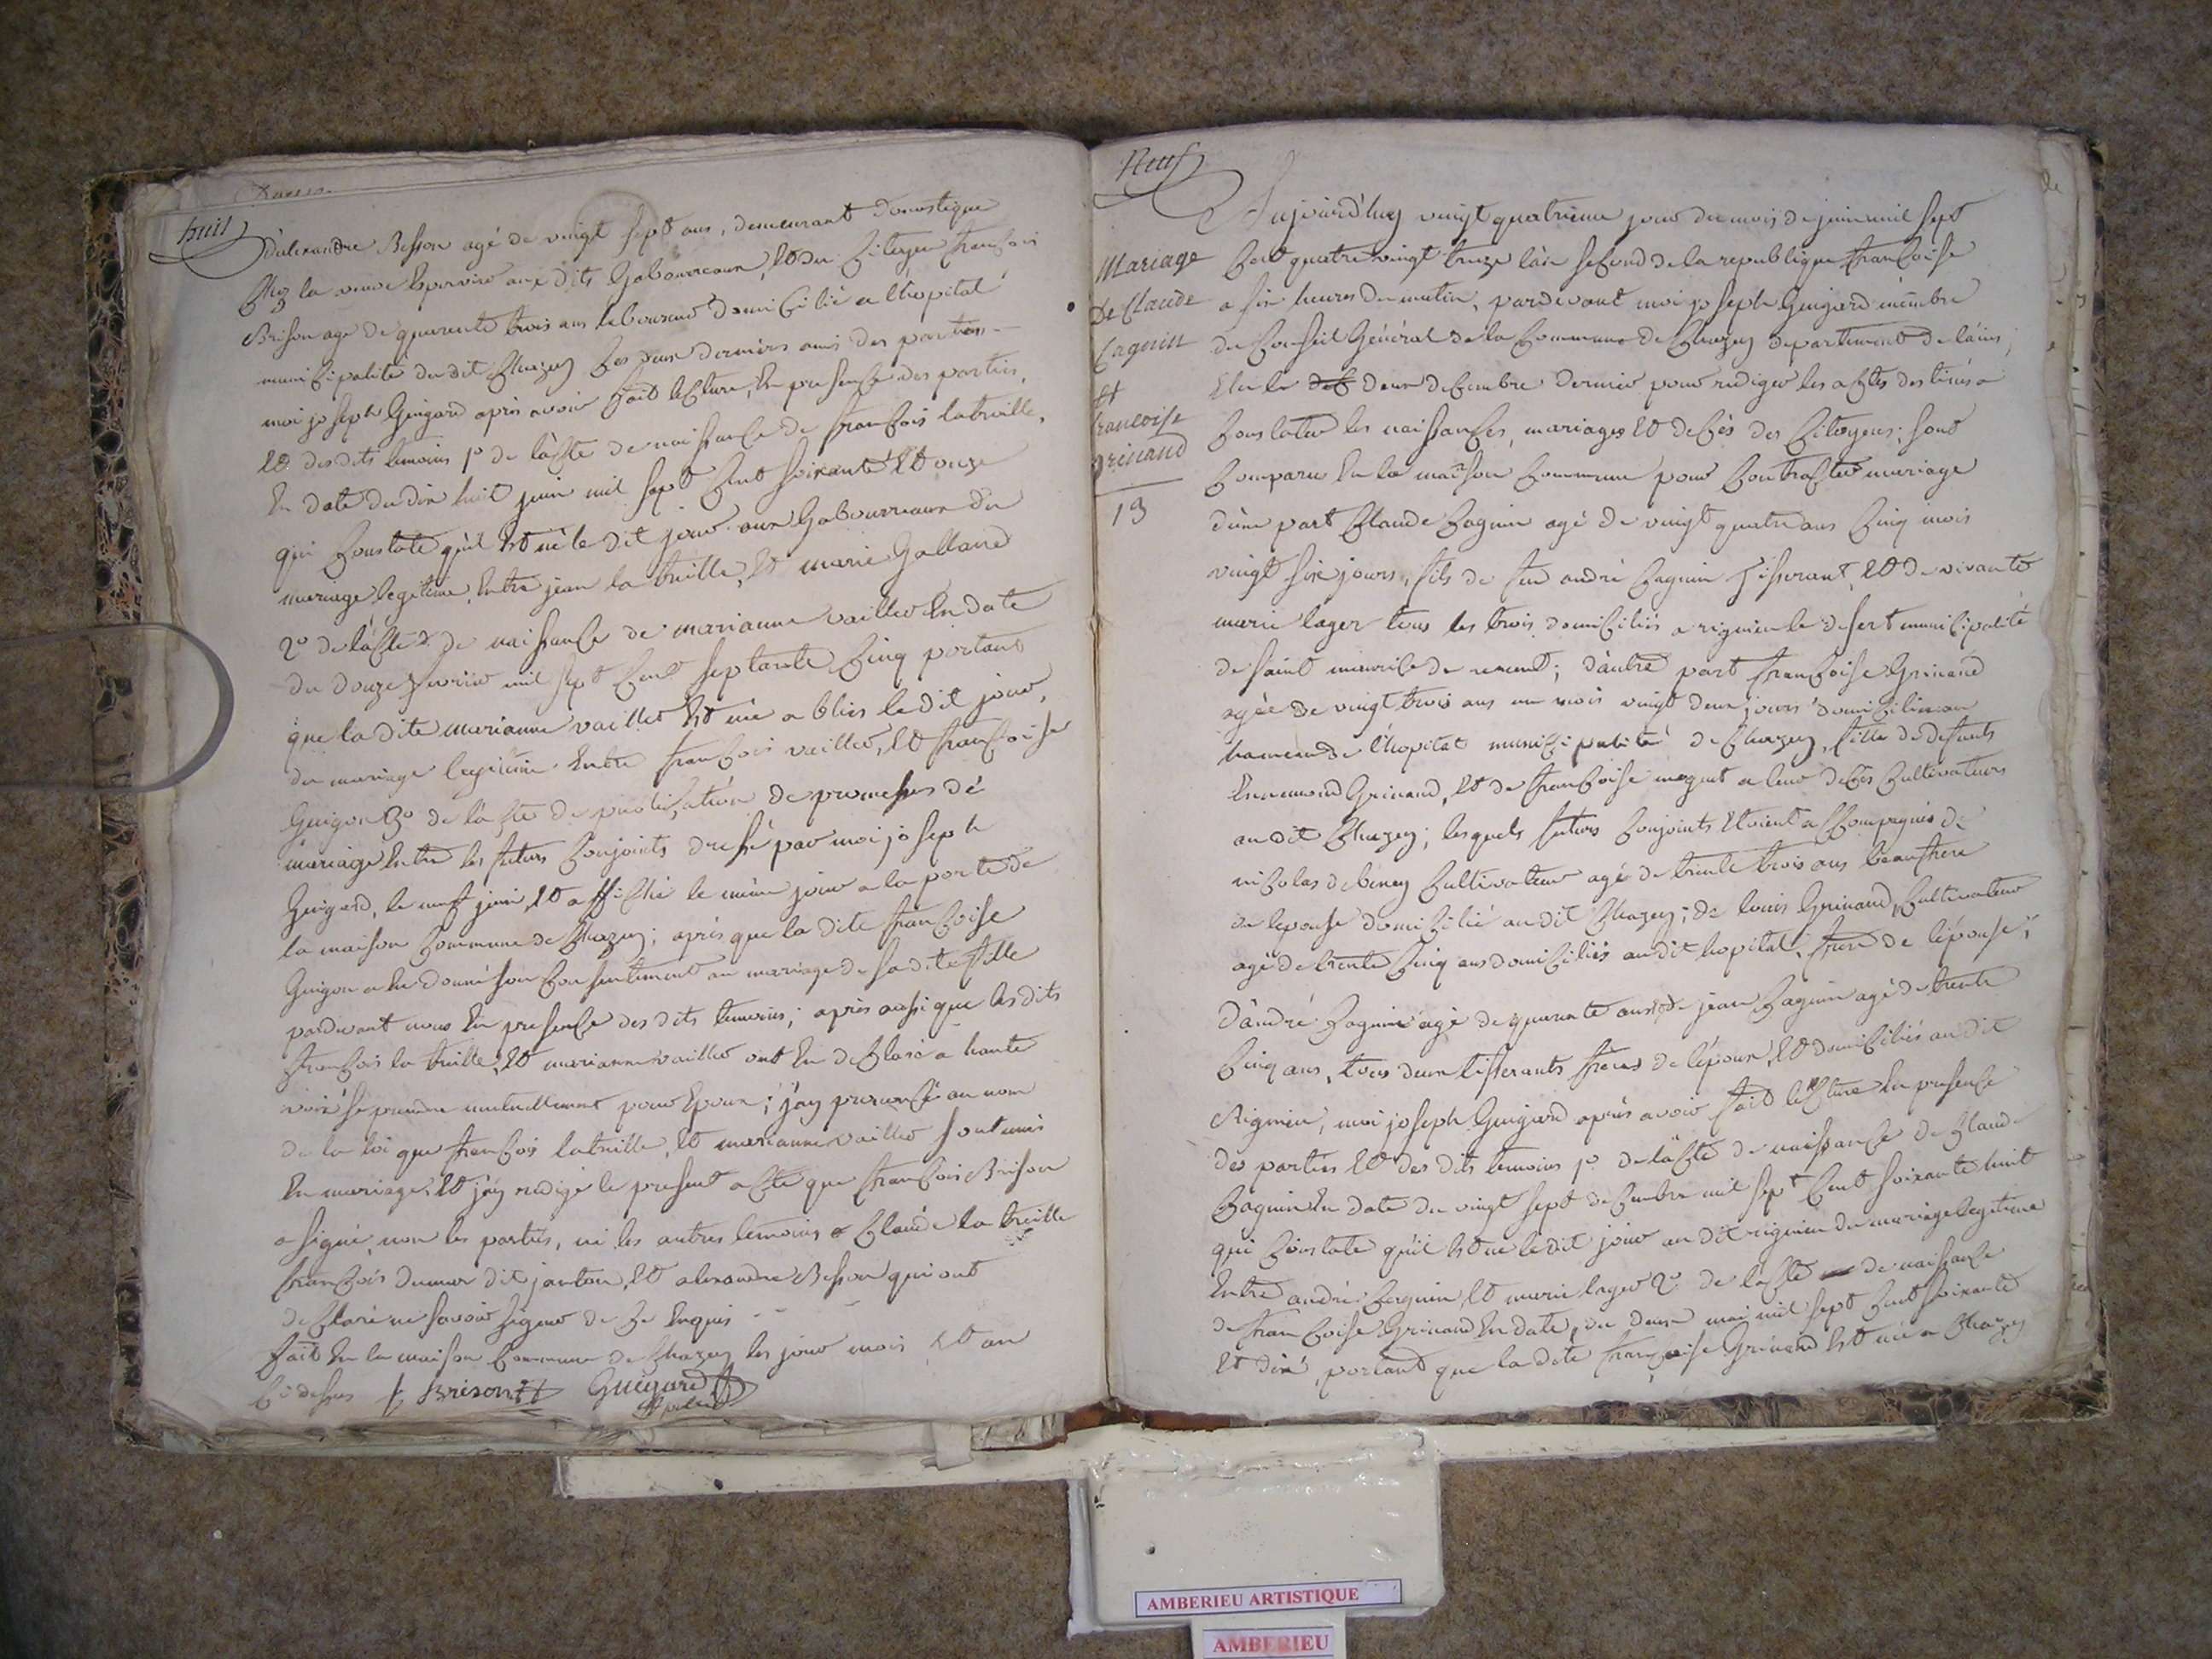 huit
d'alexandre Besson agé de vingt sept ans, demeurant domestique
Chez la veuve Epervier aux dits Gabourreaux, Et du Citoyen francois
Brison agé de quarente trois ans laboureur domicilié a l'hopital
municipalité du dit Chazey Les deux derniers amis des parties
moi joseph Guigard après avoir fait lecture, En presence des parties,
Et des dits temoins 1º de l'acte de naissance de francois latreille,
En date du dix huit juin mil sept Cent soixante Et onze
qui Constate qu'il Est né le dit jour aux Gabourreaux du
mariage legitime Entre jean la treille, Et marie Galland
2º de l'acte de naissance de marianne vaillet En date
du douze fevrier mil sept Cent septante Cinq portant
que la dite marianne vaillet Est née a blies le dit jour,
du mariage legitime Entre francois vaillet, Et francoise
Guigon 3º de l'acte de publication de promesses de
mariage Entre les futurs Conjoints dressé par moi joseph
Guigard, le neuf juin, Et affiché le même jour a la porte de
la maison Commune de Chazey; après que la dite francoise
Guigon a Eu donné son Consentement au mariage de sa dite fille
pardevant nous En presence des dits temoins; après aussi que les dits
francois la treille, Et marianne vaillet ont Eu declaré a haute
voix se prendre mutuellement pour Epoux; j'ay prononcé au nom
de la loi que francois latreille, Et marianne vaillet sont unis
En mariage, Et j'ay redigé le present acte que francois Brison
a signé, non les parties, ni les autres temoins Claude la treille
francois dit janton, Et alexandre Besson qui ont
declaré ne savoir signer de Ce Enquis
fait En la maison Commune de Chazey les jour mois Et an
Ci dessus f Brison Guigard
Neuf
Mariage
de Claude
Caguin
Et
francoise
Grinand
13
Aujourd'huy vingt quatrieme jour du mois de juin mil sept
Cent quatre vingt treize l'an second de la republique francoise
a six heures du matin, pardevant moi joseph Guigard membre
du Conseil Général de la Commune de Chazey departement de l'ain,
Elu le deux decembre dernier pour rediger les actes destinés a
Constater les naissances, mariages Et decès des Citoyens; sont
Comparu En la maison Commune pour Contracter mariage
d'une part Claude Caguin agé de vingt quatre ans Cinq mois
vingt six jours, fils de feu andré Caguin Tisserant, Et de vivante
marie lager tous les trois domiciliés a rignieu le desert municipalité
de saint maurice de rement; d'autre part francoise Grinand
agée de vingt trois ans un mois vingt deux jours domiciliée au
hameau de l'hopital municipalité de Chazey, fille de defunts
Ennemond Grinand, Et de francoise magnet a leur decès Cultivateurs
au dit Chazey; lesquels futurs Conjoints Etoient accompagnés de
nicolas debeney Cultivateur agé de trente trois ans beaufrere
de lepouse domicilié au dit Chazey; de louis Grinand, Cultivateur
agé de trente Cinq ans domiciliés au dit hopital, frere de l'épouse;
d'andré Caguin agé de quarante ans, de jean Caguin agé de trente
Cinq ans, tous deux tisserants freres de l'époux, Et domiciliés au dit
Rignieu, moi joseph Guigard après avoir fait lecture En presence
des parties Et des dits temoins 1º de l'acte de naissance de Claude
Caguin En date du vingt sept decembre mil sept Cent soixante huit
qui Constate qu'il Est né le dit jour au dit rignieu du mariage legitime
Entre andré Caguin, Et marie lager 2º de l'acte de naissance
de francoise Grinand En date, du deux mai mil sept Cent soixante
Et dix, portant que la dite francoise Grinand Est née a Chazey
AMBERIEU ARTISTIQUE
AMBERIEU